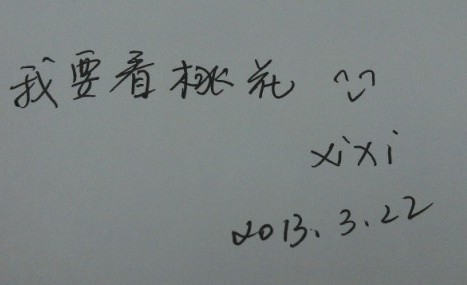 我要看桃花
xixi
2013.3.22